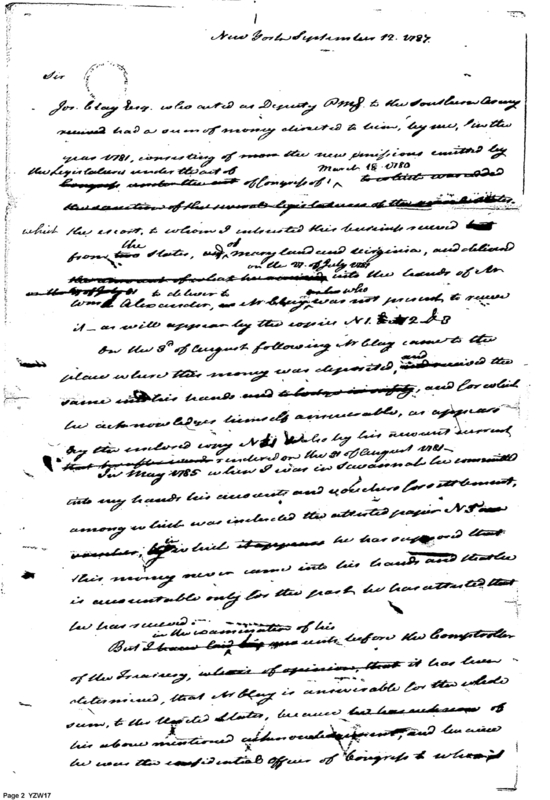 New York September 12. 1787.
Sir
Jos. Clay Esq. who acted as Deputy PMG to the Southern Army
received had a sum of money directed to him, by me, in the
year 1781, consisting of the new emissions emitted by
the Legislatures under the act of March 18. 1780
Congress under the act of Congress of to which was added
the sanction of the several legislatures of the
which the escort, to whom I intrusted this business received
from the two States, of Maryland and Virginia, and delivered
on the of July
into the hands of Mr
Wm Alexander, to deliver to Mr Clay who was not present to receive
it — as will appear by the copies N 1. 2 & 3
On the 3d of August following Mr Clay came to the
place where this money was deposited, and received the
same into his hands and to lodge in safety, and for which
he acknowledges himself answerable, as appears
by the enclosed copy N also by his account current
rendered on the 31 of August 1781
In May 1785 when I was in Savannah he committed
into my hands his accounts and vouchers for settlement,
among which was included the attested paper N 5
voucher, by which it appears he has supposed that
this money never came into his hands and that he
is accountable only for the part he has attested that
he has received.
in the examination of his
But I have laid before the Comptroller
of the Treasury, who is of opinion, that it has been
determined, that Mr Clay is answerable for the whole
sum, to the United States, because of
his above mentioned acknowledgement, and because
he was the confidential officer of Congress to whom
Page 2 YZW17